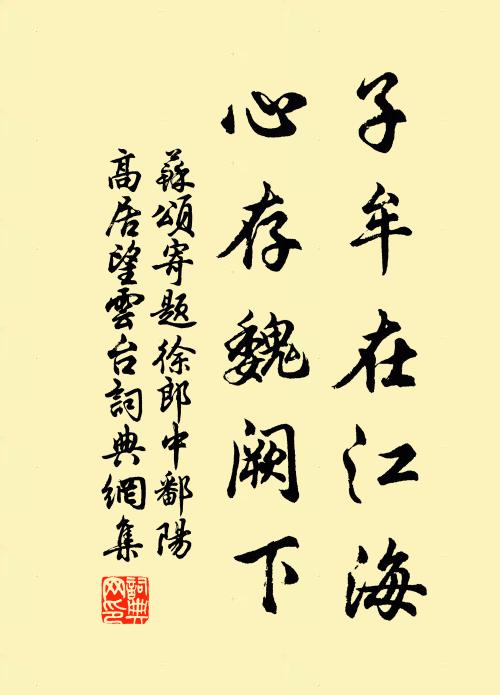 子牟在江海
心存魏阙下
蘇頌寄題徐郎中鄱陽
高居望雲台詞典網集
詞典网印